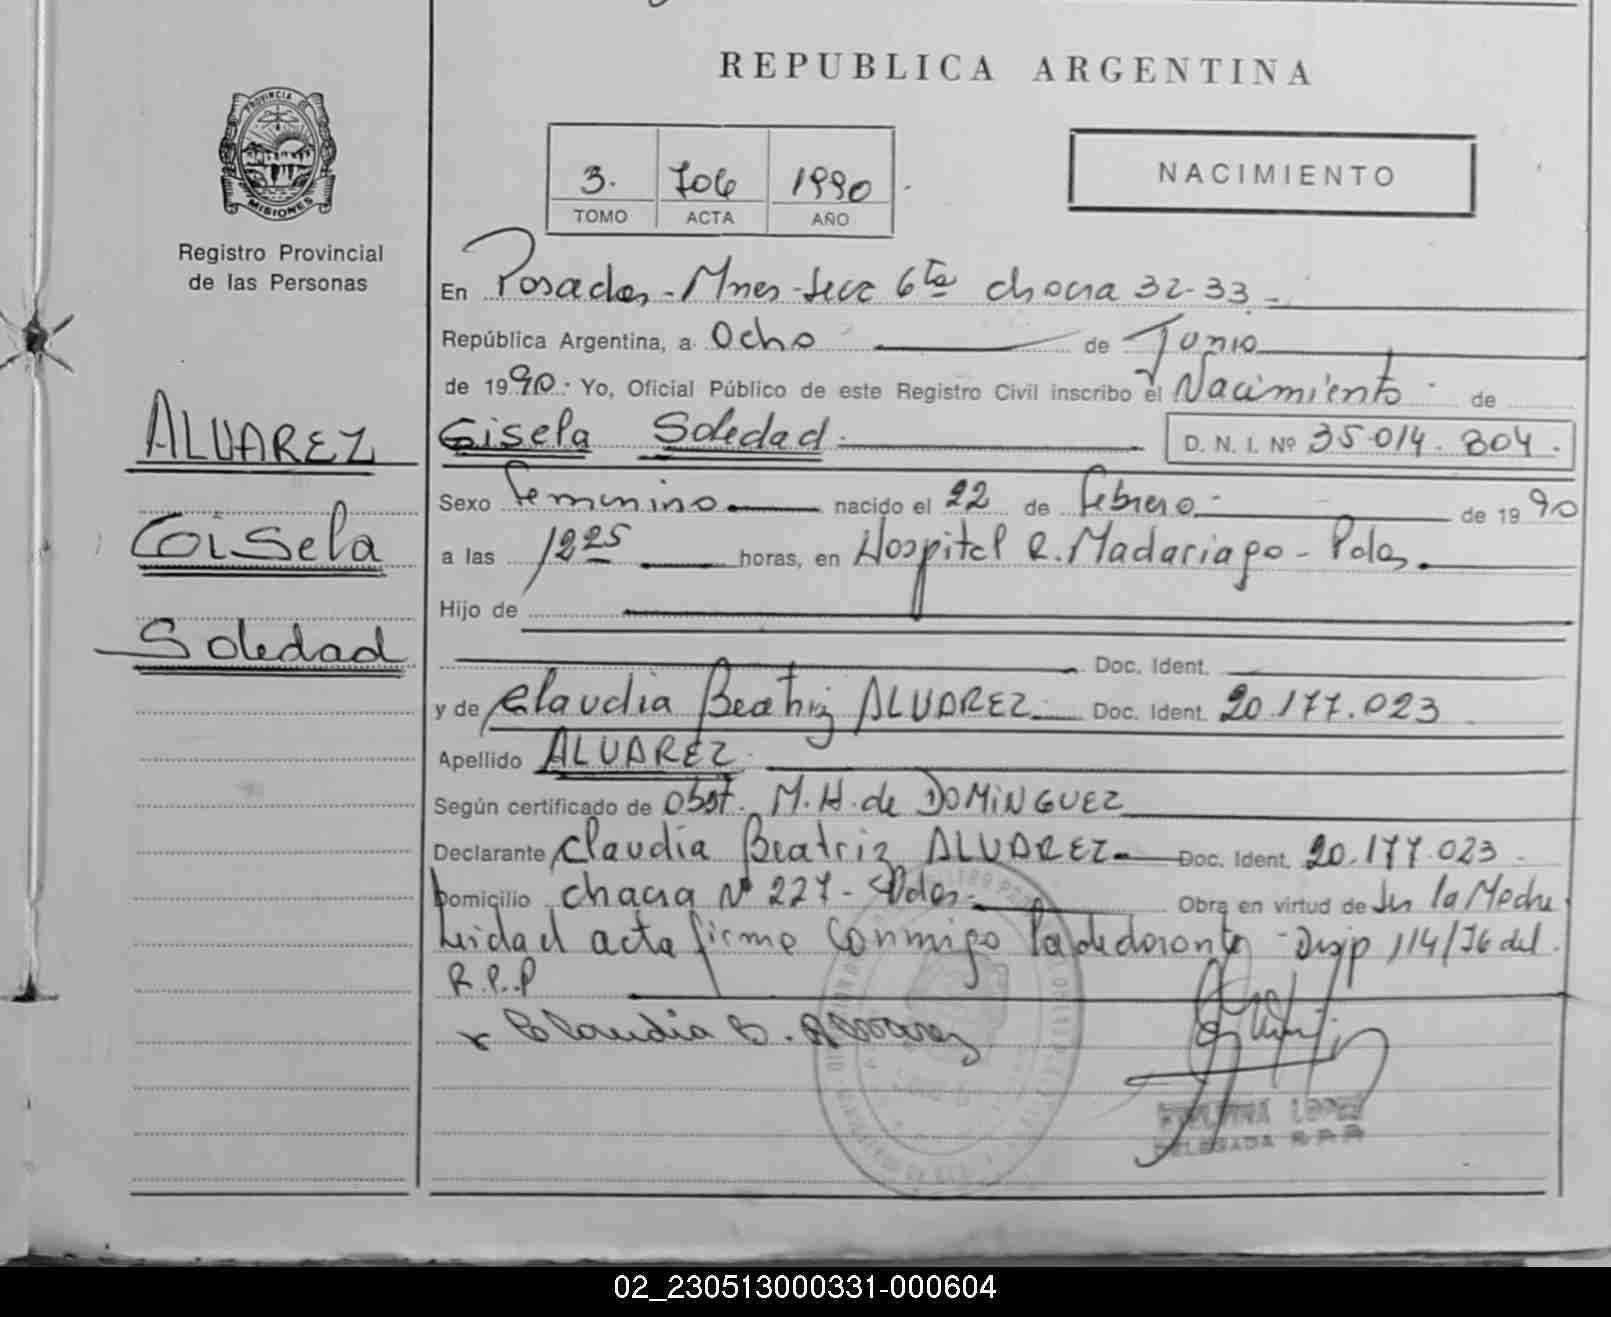 REPUBLICA ARGENTINA
PROVINCIA DE
MISIONES
Registro Provincial
de las Personas
3. 706 1990
TOMO ACTA AÑO
NACIMIENTO
En Posadas - Mnes - Secc 6ta chacra 32-33 -
República Argentina, a Ocho de Junio
de 1990.- Yo, Oficial Público de este Registro Civil inscribo el Nacimiento - de
ALVAREZ
Gisela Soledad.- D. N. I. Nº 35.014.804.
Gisela
Sexo femenino nacido el 22 de febrero - de 1990
a las 1225 horas, en Hospital R. Madariaga - Pdas.
Hijo de
Soledad
Doc. Ident.
y de Claudia Beatriz ALVAREZ Doc. Ident. 20.177.023
Apellido ALVAREZ.
Según certificado de Obst. M. H. de DOMINGUEZ
Declarante Claudia Beatriz ALVAREZ Doc. Ident. 20.177.023 -
Domicilio chacra Nº 227 - Pdas.- Obra en virtud de Ser la Madre
acta firma conmigo la - Disp 114/76 del
R.P.P
x Claudia B. Alvarez
LOPEZ
DELEGADA R.P.P.
02_230513000331-000604